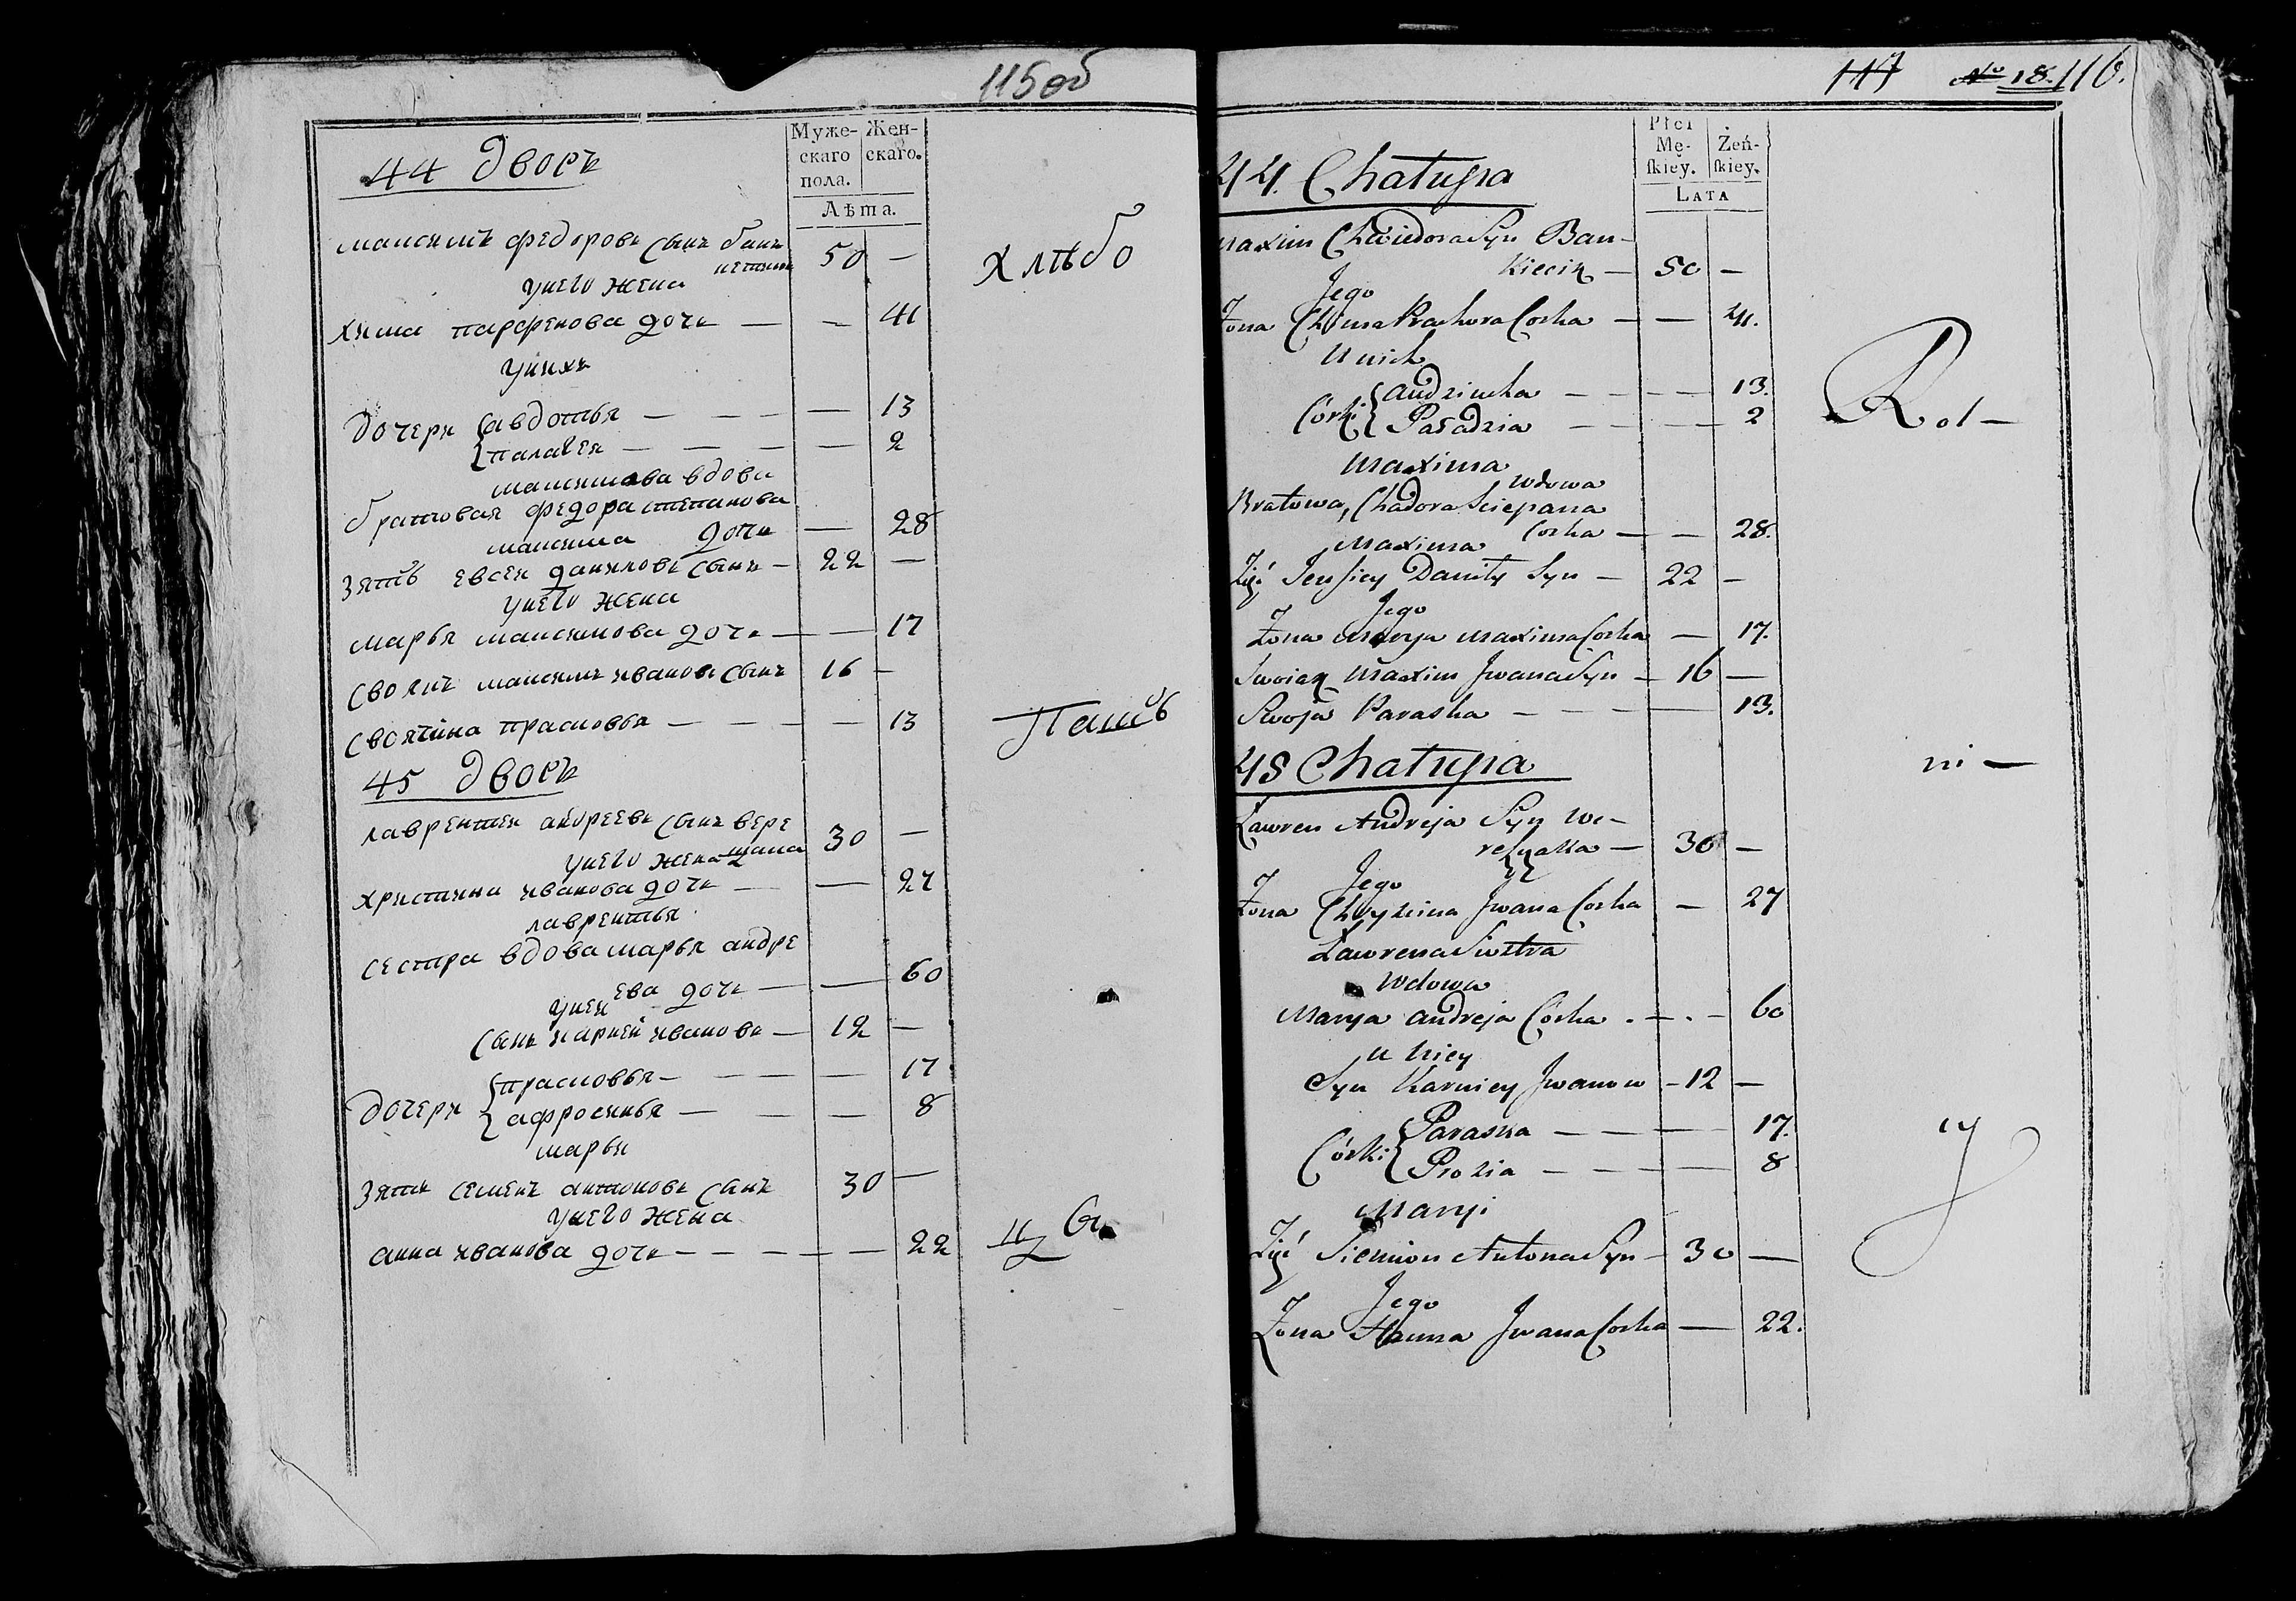 115 об
44 дворъ
Муже-
скаго
пола.
Жен-
скаго.
Лѣта.
максимъ федоровъ сынъ банъ
кетинъ 50 —
у него жена
хима парфенова дочь — — 41
у нихъ
дочери { авдотья — — — — 13
{ палагея — — — — 2
максимова вдова
братовая федора степанова
дочь — 28
максима
зять евсей даниловъ сынъ — 22 —
у него жена
марья максимова дочь — — 17
своякъ максимъ ивановъ сынъ 16 —
своячина прасковья — — — — 13
45 дворъ
лаврентей андреевъ сынъ вере
щака 30 —
у него жена
христина иванова дочь — — 27
лаврентья
сестра вдова марья андре
ева дочь — — 60
у ней
сынъ карней ивановъ — 12 —
дочери { прасковья — — — — 17
{ афросинья — — — 8
марьи
зять семенъ антоновъ сынъ 30 —
у него жена
анна иванова дочь — — — — — 22
хлѣбо
паш
цы
117 No 18. 116.
44. Chałupa
Płci
Mę-
skiey.
Żeń-
skiey.
LATA
Maxim Chwiedora Syn Ban-
kiecik — 50 —
Jego
Żona Chima Prachora Corka — — 41.
U nich
Córki { Audziucha — — — — 13.
{ Paładzia — — — — 2
Maxima
wdowa
Bratowa, Chadora Sciepana
Corka — — 28.
Maxima
Zięć Jeusiey Daniły Syn — 22 —
Jego
Żona Marya Maxima Corka — 17.
Swoiak Maxim Jwana Syn — 16 —
Swoja Paraska — — — — 13.
45 Chałupa
Ławren Andreja Syn We-
reszczaka — 30 —
Jego
Żona Chryzina Jwana Corka — 27
Ławrena Siostra
Wdowa
Marya Andreja Córka . — . — 60
u niey
Syn Karniey Jwanow — 12 —
Córki { Paraska — — — — 17.
{ Prozia — — — — 8
Maryi
Zięć Siemion Antona Syn — 30 —
Jego
Żona Hanna Jwana Corka — 22.
Rol —
ni —
cy